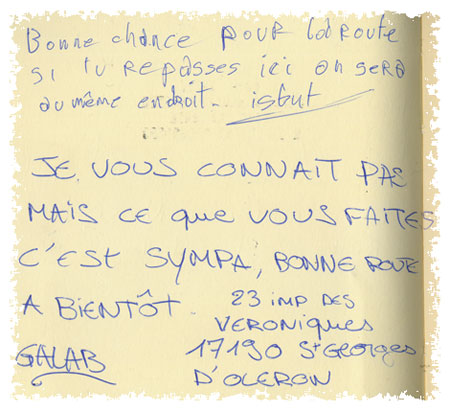 Bonne chance pour la route
si tu repasses ici on sera
au même endroit.
JE VOUS CONNAIT PAS
MAIS CE que VOUS FAITES
C'EST SYMPA, BONNE ROUTE
A BIENTÔT. 23 imp DES
VERONiques
GALAB 17190 St GEORGES
D'OLERON